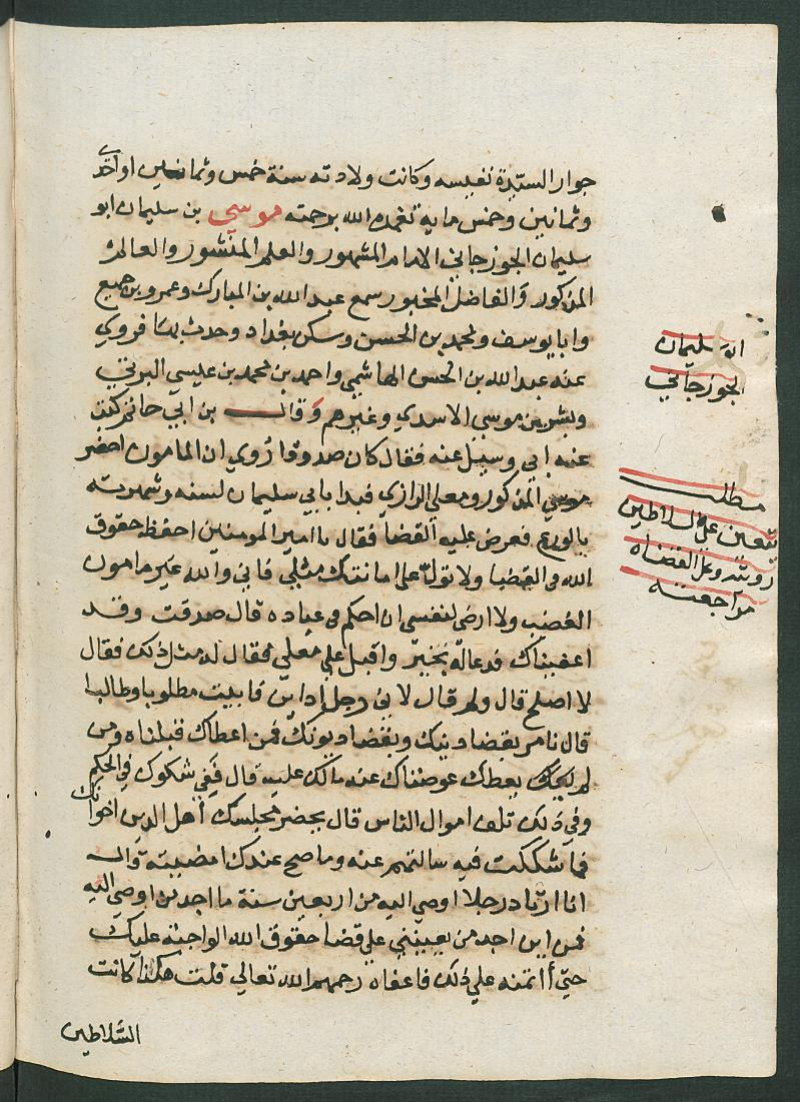 جوار السيدة نفيسه وكانت ولادته سنة خمس وثمانين او احدى
وثمانين وخمس مايه تغمده الله برحمته موسي بن سليمان ابو
سليمان الجوزجاني الامام المشهور والعلم المنشور والعالم
المذكور والفاضل المخبور سمع عبد الله بن المبارك وعمرو بن جميع
وابا يوسف ومحمد بن الحسن وسكن بغداد وحدث بها فروي
عنه عبد الله بن الحسن الهاشمي واحد بن محمد بن عيسي البرتي
وبشر بن موسي الاسدي وغيرهم وقال بن ابي حاتم كتب
عنه ابي وسيل عنه فقال كان صدوقا روي ان المامون احضر
موسي المذكور ومعلي الرازي فبدا بابي سليمان لسنه وشهرته
بالورع فعرض عليه القضا فقال يا امير المومنين احفظ حقوق
الله في القضا ولا تول علي امانتك مثلي فاني والله غير مامون
الغضب ولا ارضي لنفسي ان احكم في عباده قال صدقت وقد
اعفيناك فدعا له بخير واقبل علي معلي فقال له مثل ذلك فقال
لا اصلح قال ولم قال لاني رجل اداين فابيت مطلوبا وطالبا
قال نامر بقضا دينك وبقضا ديونك فمن اعطاك قبلناه ومن
لم يعطك عوضناك عنه مالك عليه قال ففي شكوك في الحكم
وفي ذلك تلف اموال الناس قال يحضر مجلسك اهل الدين اخوانك
فما شككت فيه سالتهم عنه وما صح عندك امضيته قال
انا ارتاد رجلا اوصي اليه من اربعين سنة ما اجد من اوصي اليه
فمن اين اجد من يعينني علي قضا حقوق الله الواجبة عليك
حتي أأتمنه علي ذلك فاعفاه رحمهم الله تعالي قلت هكذا كانت
السلاطين
سليمان
الجوزجاني
مطلب
يتعين علي السلاطين
وعلي القضاه
مراجعته